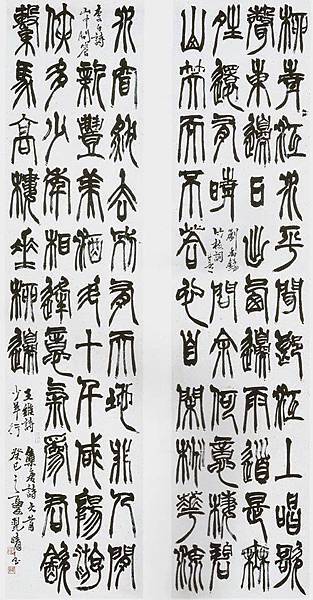 柳青江水平聞郎江上唱歌
聲東邊日出西邊雨道是無
晴還有晴
劉禹錫
竹枝詞
問余何意棲碧
山笑而不答心自閑桃花流
水窅然去別有天地非人間
李白詩
山中問答
新豐美酒斗十千咸陽遊
俠多少年相逢意氣為君飲
繫馬高樓垂柳邊
王維詩
少年行
集唐詩三首
癸巳之夏